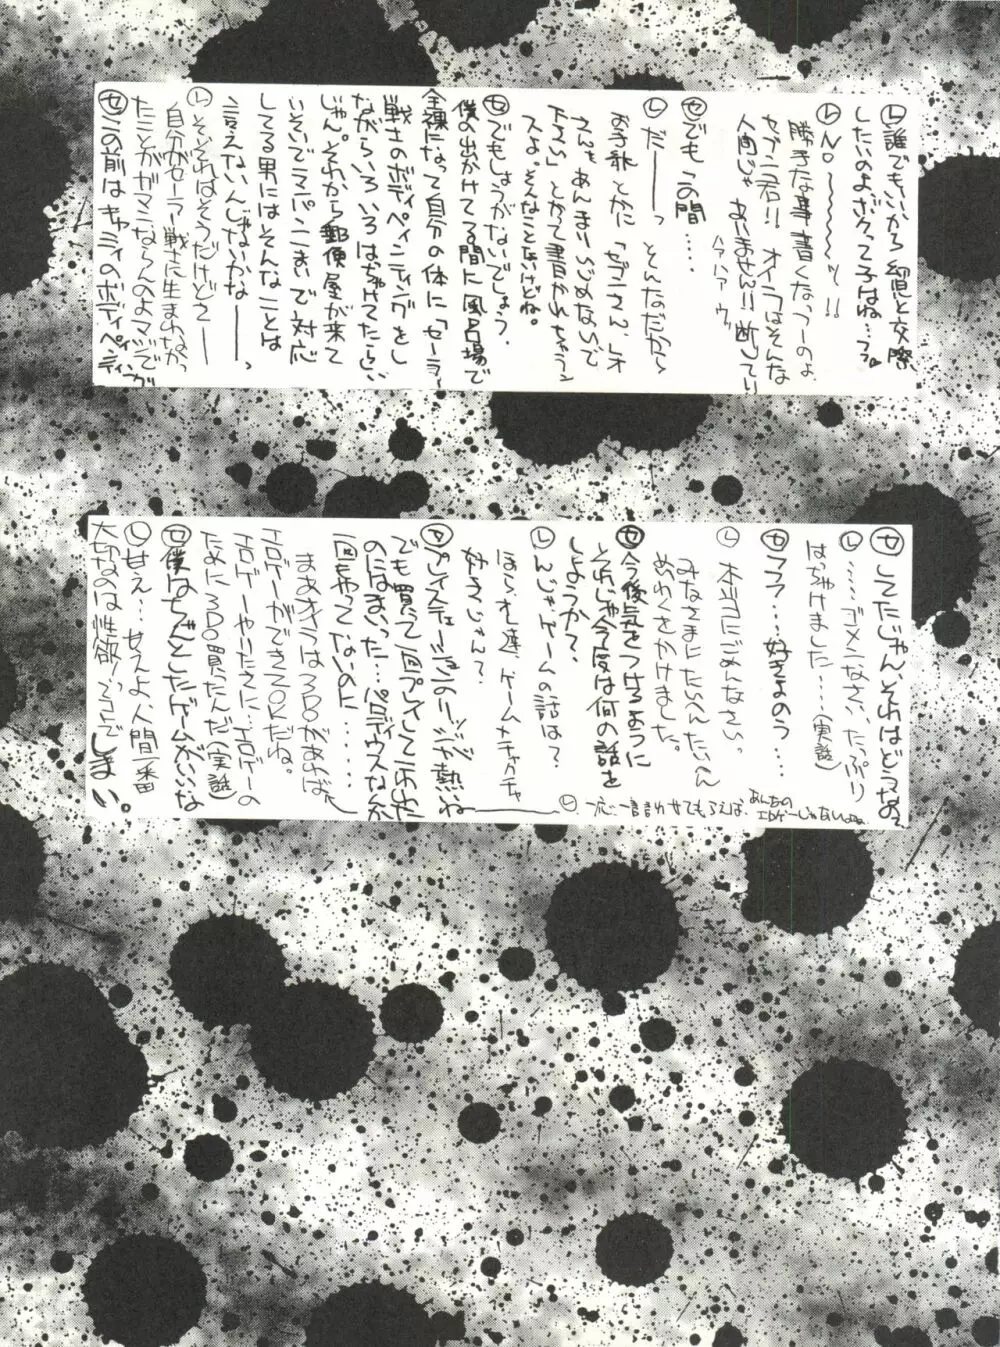 ㋹誰でもいいから幼児と交際
したいのよボクってヲはね…フフ♥
㋹No〜〜〜〜〜ッ!!
勝手な事書くなっつーのよ
セブニ君!! オイラはそんな
人間じゃありません!! 断じて!!
ハァハァ ウッ
㋝でもこの間…
㋹だーーーっ とんなだから
お手紙とかに「セブニさん、レオ
さんをあんまりいじめないで
下さい」とかって書かれちゃうン
スよ。そんなことないけどね。
㋝でもしょうがないでしょう。
僕の出かけてる間に風呂場で
全裸になって自分の体に「セーラー
戦士のボディペインティングをし
ながらいろいろはぢゃけてたとい
じゃん。それから郵便屋が来て
いそいでランパン一まいで対応
してる男にはそんなことは
言えないんじゃないかなーーー。
㋹そ、それはそうだけどさーー
自分がセーラー戦士に生まれなかっ
たことがガマンならんのよマジで
㋝この前はキャミィのボディペインティング
㋝してたじゃん、それはどうなの。
㋹……ゴメンなさい、たっぷり
はぢゃけました……(実話)
㋝フフフ…好きよのう…
㋹本当にごめんなさい。
みなさまにたいへんたいへん
めいわくをかけました。
㋝今後気をつけるように
それじゃ今度は何の話を
しようか?
㋹んじゃゲームの話は?
ほらオレ達、ゲームメチャクチャ
好きじゃん?
㋝プレイステーションのリッジが熱ね
でも買って一回プレイしてこわれた
のにはまいった…パロディウスなんか
一回もやってないのに……
まあオラは3DOがあれば
エロゲーができてOKだね。
エロゲーやりたさに、エロゲーの
ために3DO買ったんだ(実話)
㋝僕はちゃんとしたゲームがいいな
㋹甘え…甘えよ、人間一番
大切なのは性欲!ってコトでしまい。
㋹一応一言言わせてもらえば、あんなの
エロゲーじゃないよね